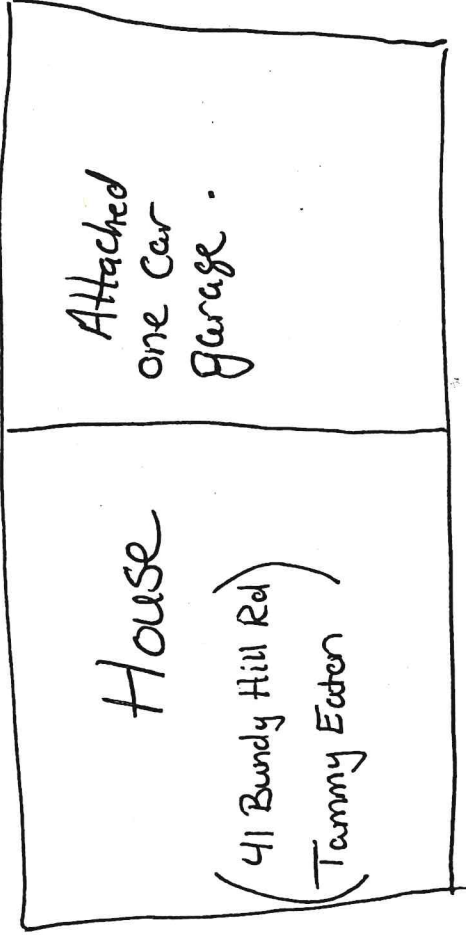 House
(41 Bundy Hill Rd)
(Tammy Eaton)
Attached
one car
garage.